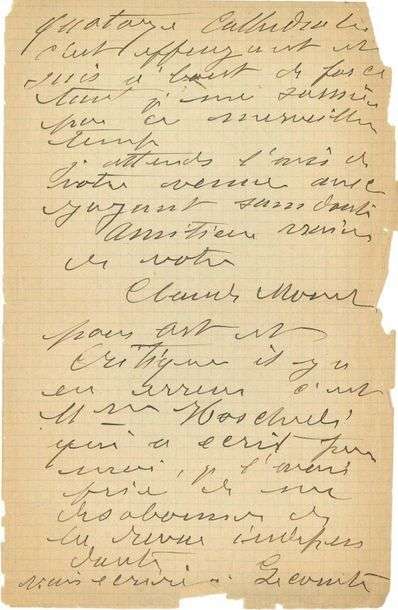 quatorze Cathédrales
c'est effrayant et
suis à bout de force
tant j'
par ce merveilleux
temps
j'attends l'avis de
votre venue avec
sans doute
amitiés
de votre
Claude Monet
pour art et
Critique il y a
eu erreur c'est
Mme Hoschedé
qui a écrit pour
moi, je l'avais
prié de me
désabonner de
la revue indépen
dante
Lecomte